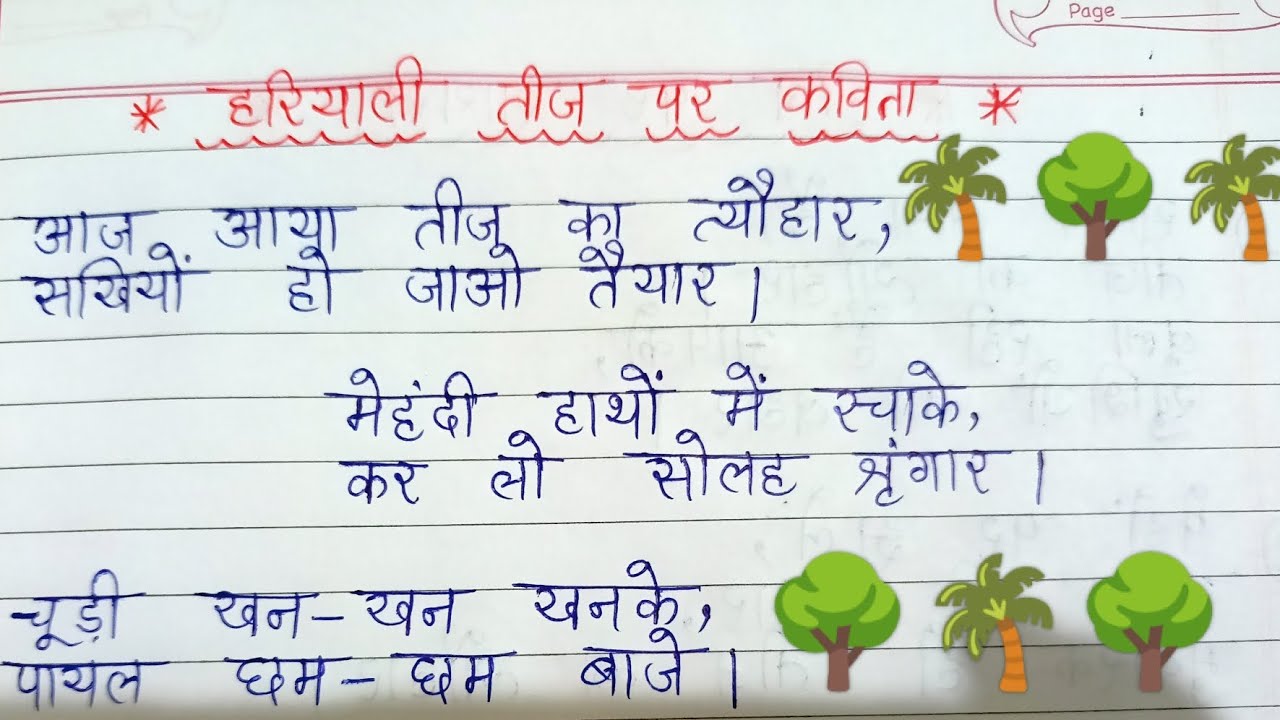 Page
* हरियाली तीज पर कविता *
आज आया तीज का त्यौहार,
सखियों हो जाओ तैयार।
मेहंदी हाथों में रचाके,
कर लो सोलह श्रृंगार।
चूड़ी खन-खन खनके,
पायल छम-छम बाजे।